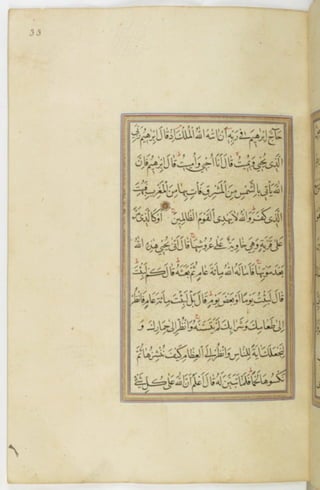 33
حَآجَّ اِبْرٰهِيمَ فِي رَبِّهِ اَنْ اٰتٰيهُ اللّٰهُ الْمُلْكَ اِذْ قَالَ اِبْرٰهِيمُ رَبِّيَ
الَّذِي يُحْيِي وَيُمِيتُ قَالَ اَنَا اُحْيِي وَاُمِيتُ قَالَ اِبْرٰهِيمُ فَاِنَّ
اللّٰهَ يَأْتِي بِالشَّمْسِ مِنَ الْمَشْرِقِ فَأْتِ بِهَا مِنَ الْمَغْرِبِ فَبُهِتَ
الَّذِي كَفَرَ وَاللّٰهُ لَا يَهْدِي الْقَوْمَ الظَّالِمِينَ اَوْ كَالَّذِي مَرَّ
عَلٰى قَرْيَةٍ وَهِيَ خَاوِيَةٌ عَلٰى عُرُوشِهَا قَالَ اَنّٰى يُحْيِي هٰذِهِ اللّٰهُ
بَعْدَ مَوْتِهَا فَاَمَاتَهُ اللّٰهُ مِائَةَ عَامٍ ثُمَّ بَعَثَهُ قَالَ كَمْ لَبِثْتَ
قَالَ لَبِثْتُ يَوْمًا اَوْ بَعْضَ يَوْمٍ قَالَ بَلْ لَبِثْتَ مِائَةَ عَامٍ فَانْظُرْ
اِلٰى طَعَامِكَ وَشَرَابِكَ لَمْ يَتَسَنَّهْ وَانْظُرْ اِلٰى حِمَارِكَ وَ
لِنَجْعَلَكَ اٰيَةً لِلنَّاسِ وَانْظُرْ اِلَى الْعِظَامِ كَيْفَ نُنْشِزُهَا ثُمَّ
نَكْسُوهَا لَحْمًا فَلَمَّا تَبَيَّنَ لَهُ قَالَ اَعْلَمُ اَنَّ اللّٰهَ عَلٰى كُلِّ شَيْءٍ